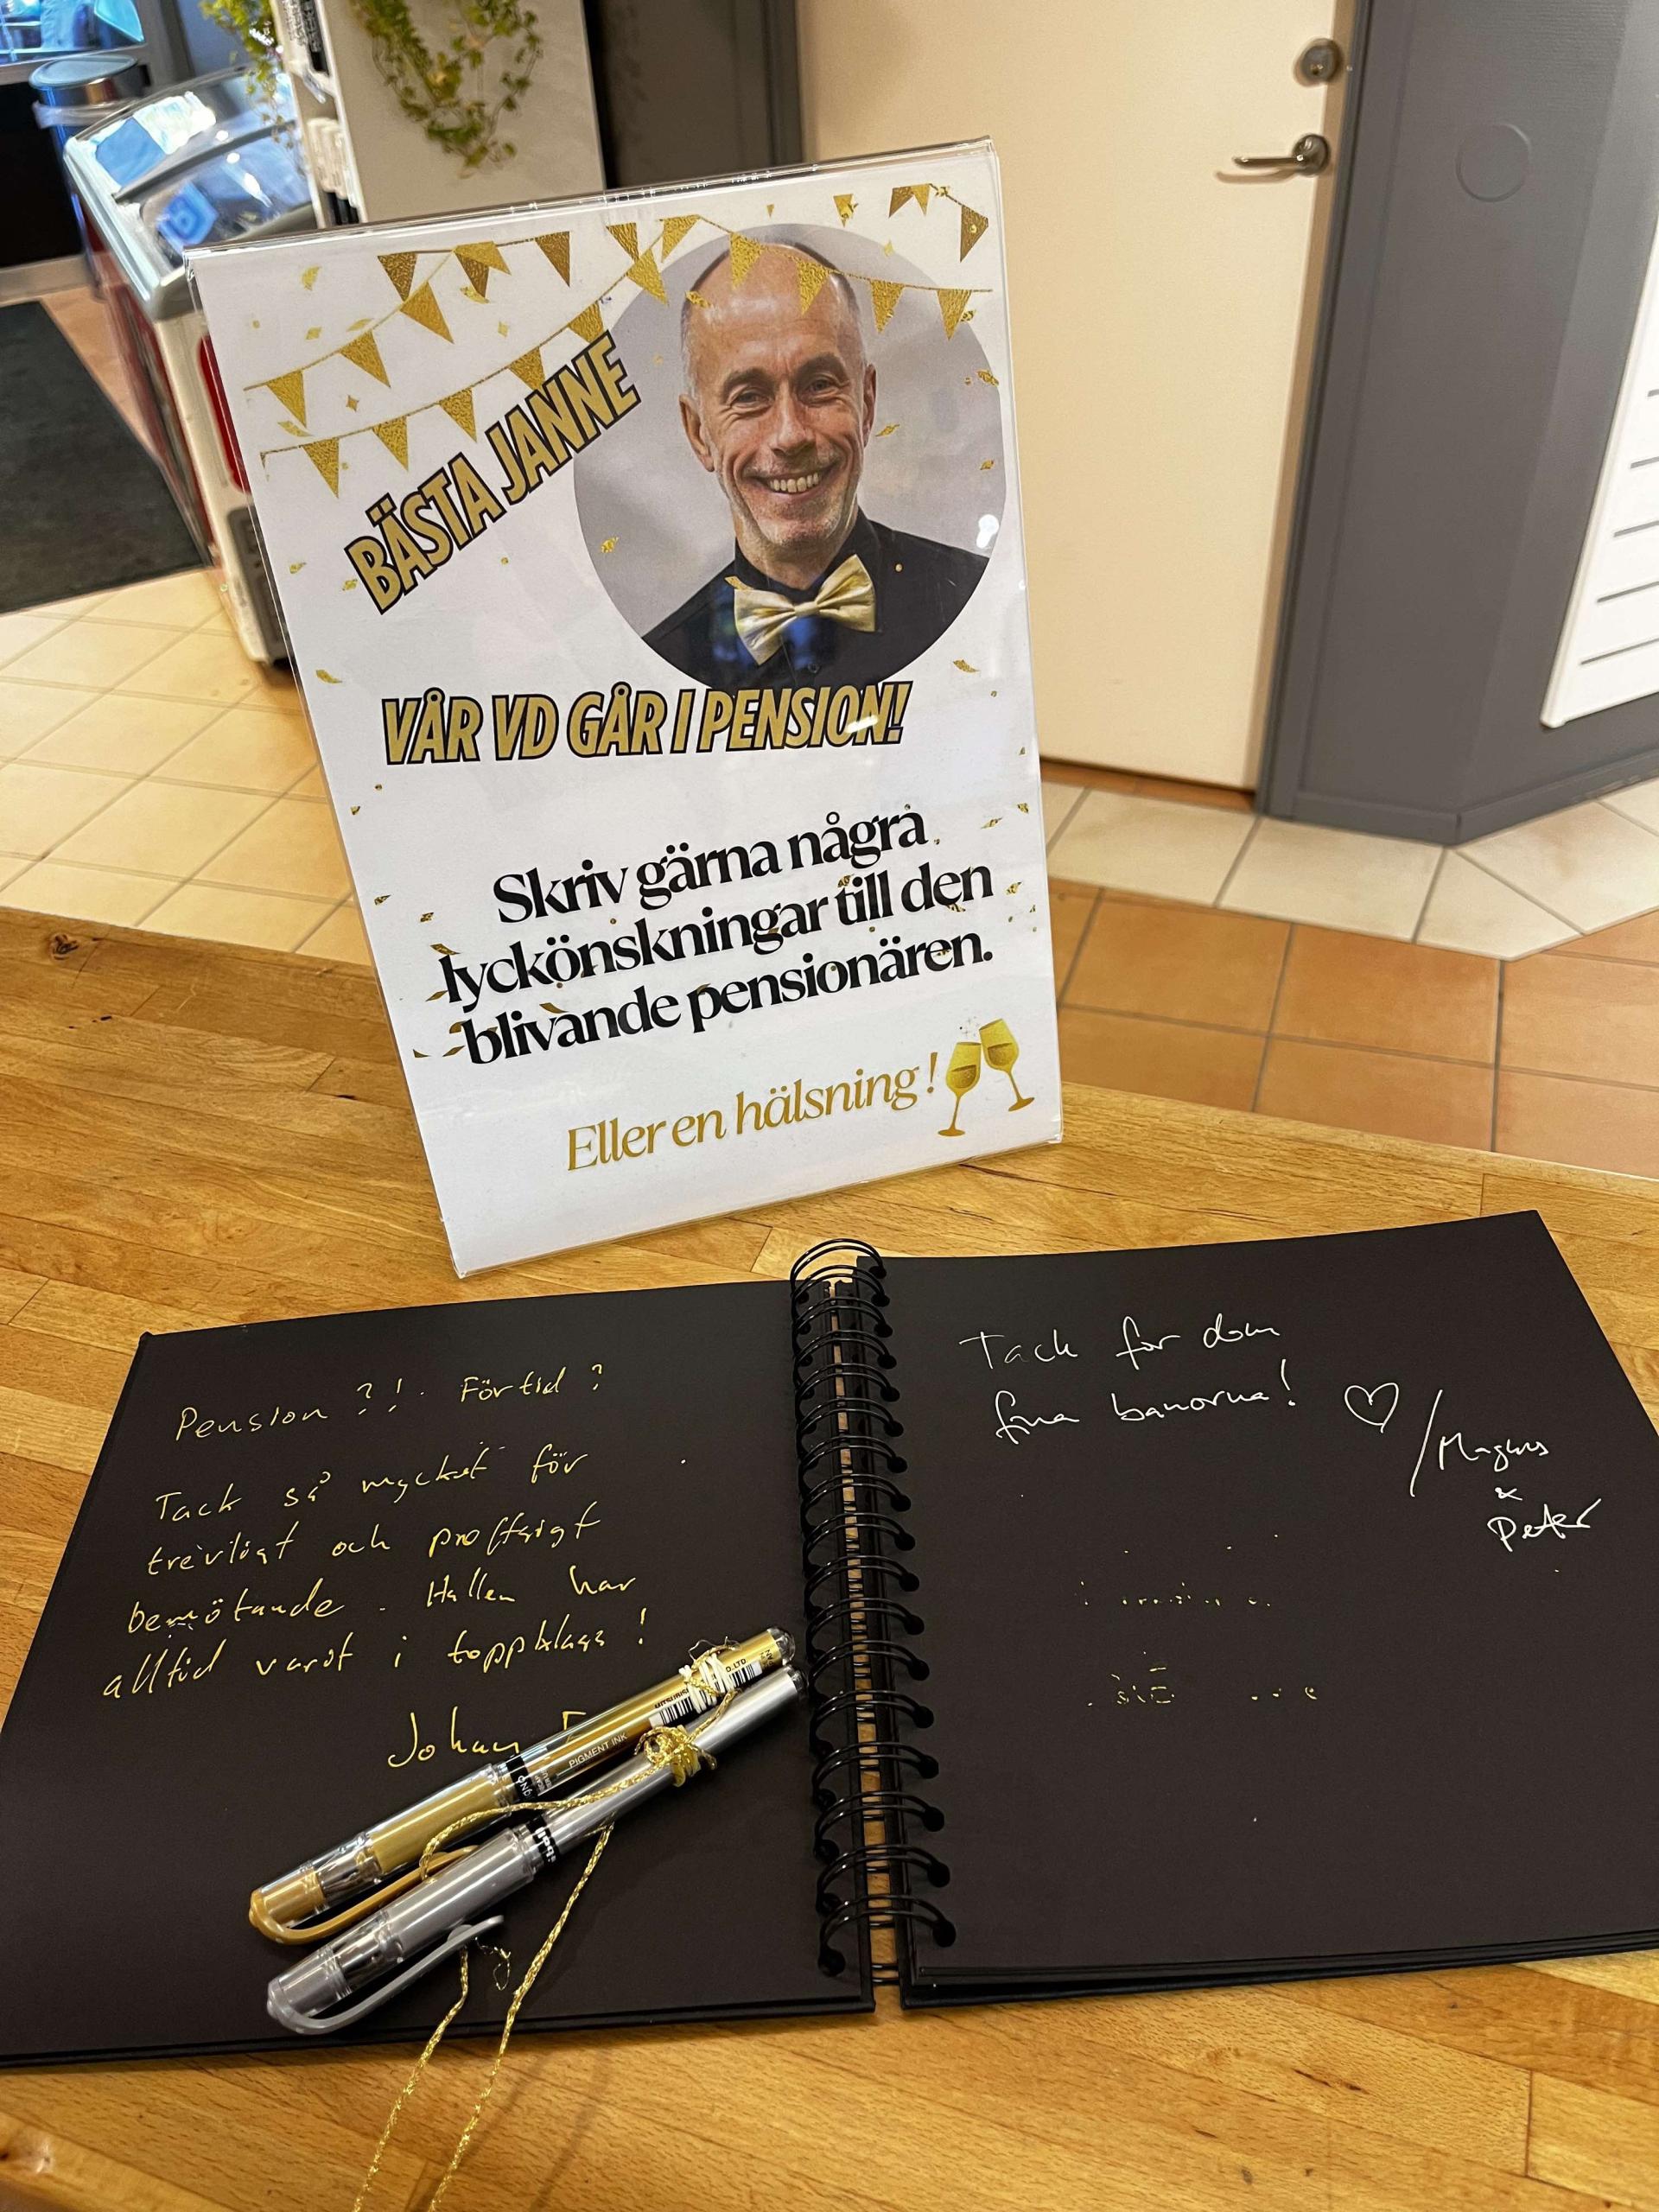 BÄSTA JANNE
VÅR VD GÅR I PENSION!
Skriv gärna några
lyckönskningar till den
blivande pensionären.
Eller en hälsning!
Pension ?! Förtid ?
Tack så mycket för
trevligt och proffsigt
bemötande. Hallen har
alltid varit i toppklass!
Johan
Tack för dom
fina banorna! ♡
/Magnus
&
Peter
PIGMENT INK